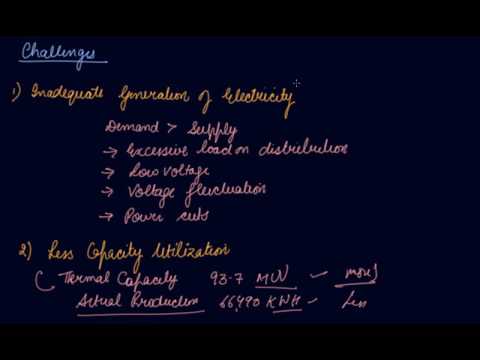 Challenges
1) Inadequate Generation of Electricity
Demand > Supply
→ Excessive load on distribution
→ Low voltage
→ Voltage fluctuation
→ Power cuts
2) Less Capacity Utilization
Thermal Capacity 93-7 MW
Actual Production 66490 KWH - less